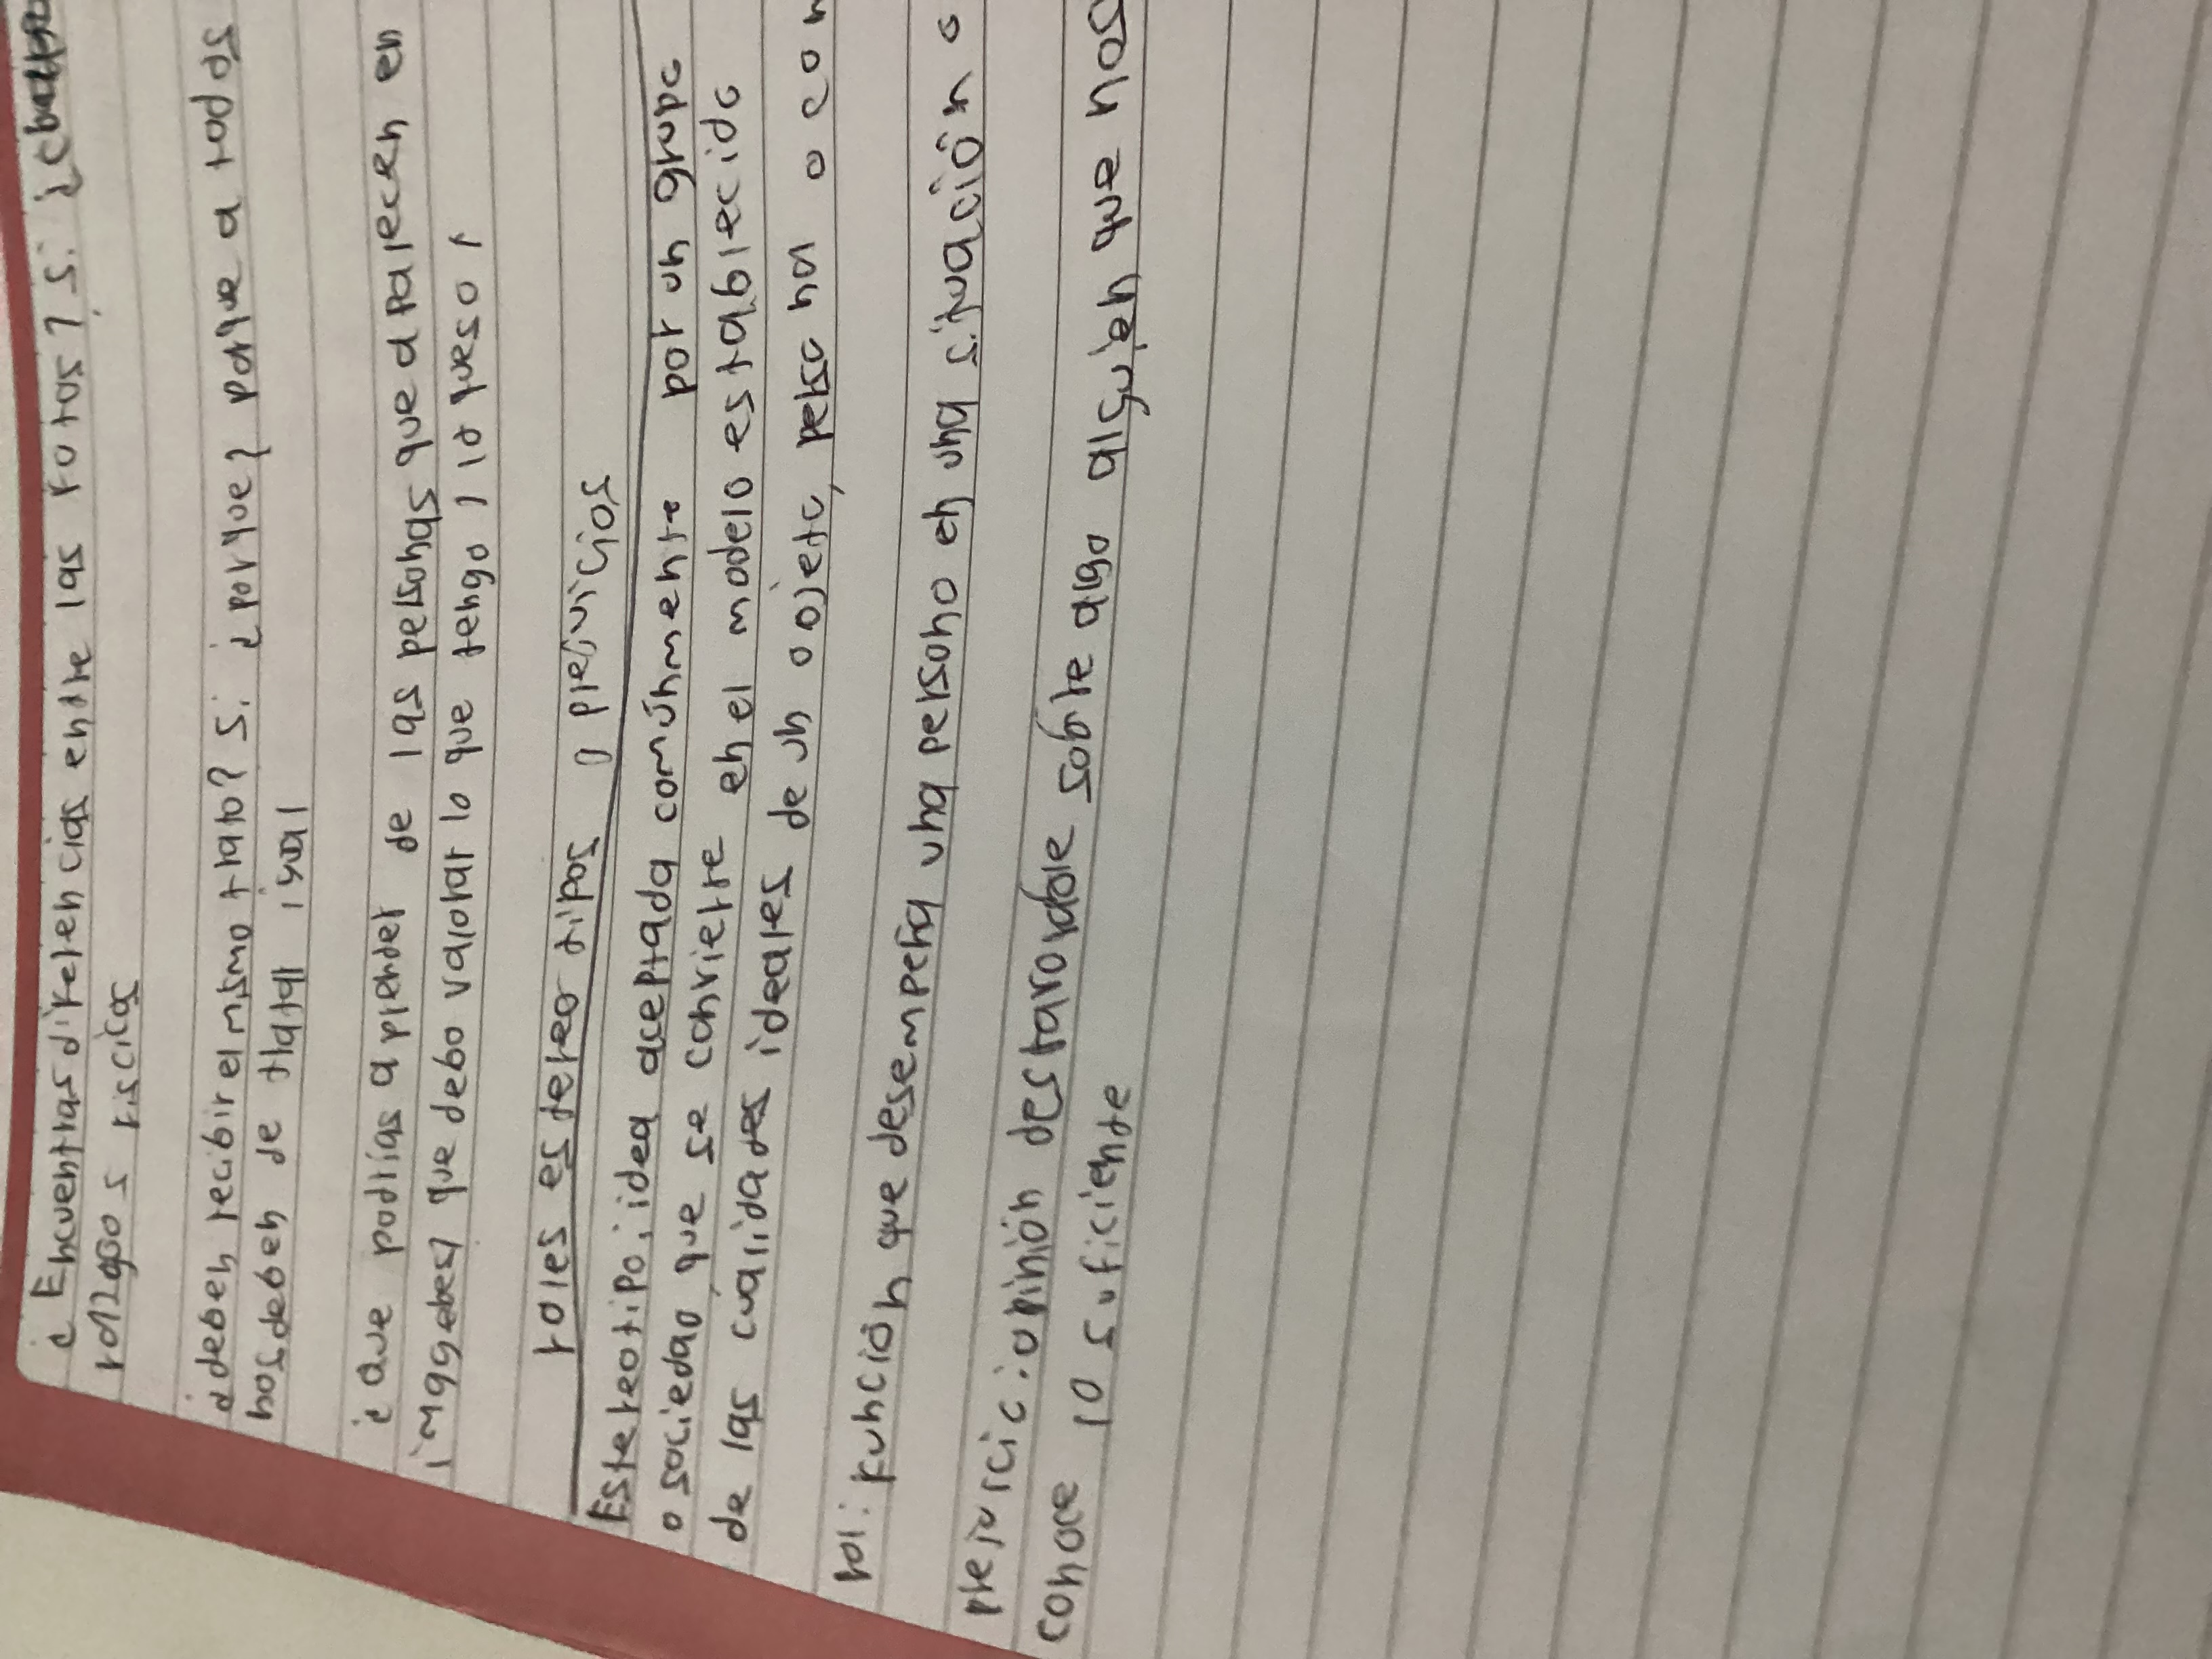 ¿Encuentras diferencias entre las fotos? si ¿
razgos fisicos
¿deben recibir el mismo trato? si ¿porque? porque a todos
nos deben de tratar igual
¿que podrías aprender de las personas que aparecen en
que debo valorar lo que tengo, lo que so
roles estereotipos y prejuicios
Estereotipo: idea aceptada comúnmente por un grupo
o sociedad que se convierte en el modelo establecido
de las cualidades ideales de un objeto, persona o con
rol: función que desempeña una persona en una situación o
prejuicio: opinión desfavorable sobre algo alguien que no s
conoce lo suficiente